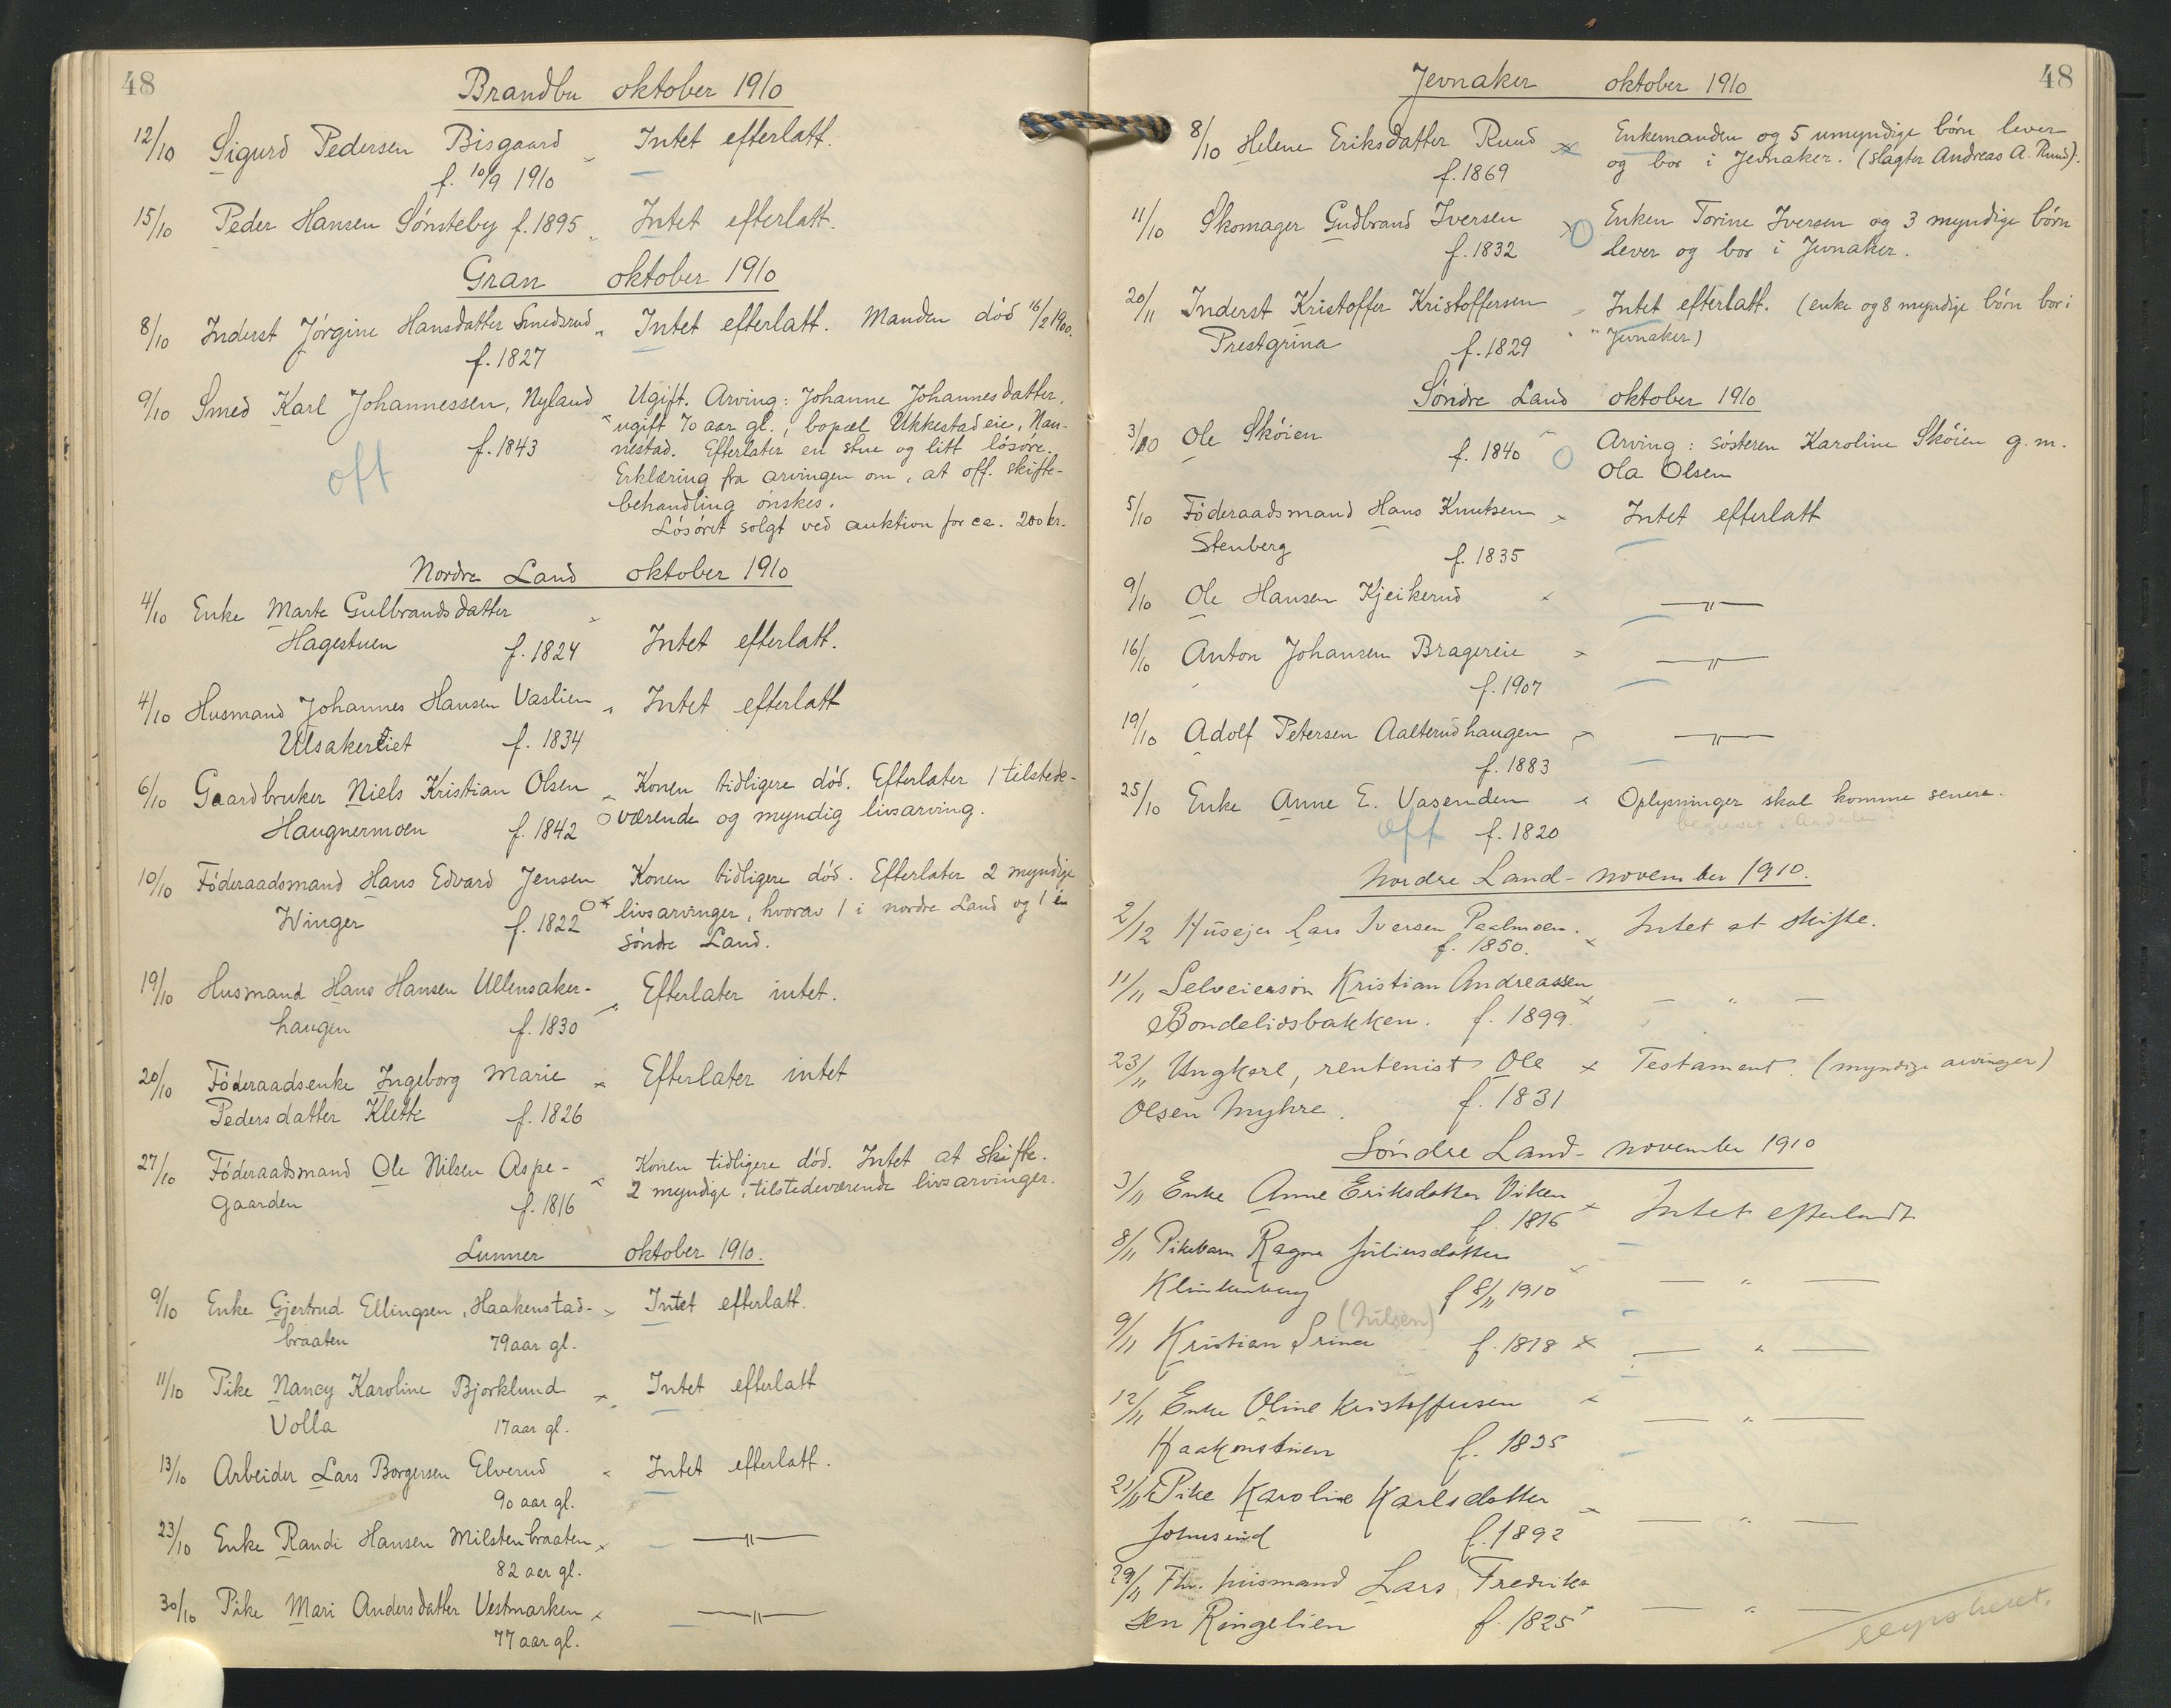 48
Brandbu oktober 1910
12/10 Sigurd Pedersen Bisgaard Intet efterlatt.
f. 10/9 1910
15/10 Peder Hansen Sønsteby f. 1895 Intet efterlatt.
Gran oktober 1910
8/10 Inderst Jørgine Hansdatter Smedsrud Intet efterlatt. Manden død 16/2 1900.
f. 1827
9/10 Smed Karl Johannessen, Nyland Ugift. Arving: Johanne Johannesdatter,
ugift 70 aar gl., bopæl Ukkestadeie, Nan-
f. 1843 nestad. Efterlater en stue og litt løsøre.
off Erklæring fra arvingen om, at off. skifte-
behandling ønskes.
Løsøret solgt ved auktion for ca. 200 kr.
Nordre Land oktober 1910
4/10 Enke Marte Gulbrandsdatter
Hagestuen f. 1824 Intet efterlatt.
4/10 Husmand Johannes Hansen Vaslien Intet efterlatt
Ulsakereiet f. 1834
6/10 Gaardbruker Niels Kristian Olsen Konen tidligere død. Efterlater 1 tilstede-
Haugnermoen f. 1842 værende og myndig livsarving.
10/10 Føderaadsmand Hans Edvard Jensen Konen tidligere død. Efterlater 2 myndige
Winger f. 1822 livsarvinger, hvorav 1 i nordre Land og 1 i
søndre Land.
19/10 Husmand Hans Hansen Ullensaker- Efterlater intet.
haugen f. 1830
20/10 Føderaadsenke Ingeborg Marie Efterlater intet
Pedersdatter Klette f. 1826
27/10 Føderaadsmand Ole Nilsen Aspe- Konen tidligere død. Intet at skifte.
gaarden f. 1816 2 myndige, tilstedeværende livsarvinger.
Lunner oktober 1910.
9/10 Enke Gjertrud Ellingsen, Haakenstad- Intet efterlatt.
braaten 79 aar gl.
11/10 Pike Nancy Karoline Bjorklund Intet efterlatt
Volla 17 aar gl.
13/10 Arbeider Lars Borgersen Elverud Intet efterlatt.
90 aar gl.
23/10 Enke Randi Hansen Milstenbraaten —"—
82 aar gl.
30/10 Pike Mari Andersdatter Vestmarken —"—
77 aar gl.
48
Jevnaker oktober 1910
8/10 Helene Eriksdatter Ruud Enkemanden og 5 umyndige børn lever
f. 1869 og bor i Jevnaker. (Slagter Andreas A. Ruud).
11/10 Skomager Gudbrand Iversen Enken Torine Iversen og 3 myndige børn
f. 1832 lever og bor i Jevnaker.
20/11 Inderst Kristoffer Kristoffersen Intet efterlatt. (enke og 8 myndige børn bor i
Prestgrina f. 1829 Jevnaker)
Søndre Land oktober 1910
3/10 Ole Skøien f. 1840 Arving: søsteren Karoline Skøien g. m.
Ola Olsen
5/10 Føderaadsmand Hans Knutsen Intet efterlatt
Stenberg f. 1835
9/10 Ole Hansen Kjeikerud —"—
16/10 Anton Johansen Bragereie —"—
f. 1907
19/10 Adolf Petersen Aalterudhaugen —"—
f. 1883
25/10 Enke Anne E. Vasenden Oplysninger skal komme senere.
off f. 1820
Nordre Land - november 1910.
2/12 Husejer Lars Iversen Paalmoen. Intet at skifte.
f. 1850.
11/11 Selveiersøn Kristian Andreassen
Bondelidsbakken. f. 1899. — " —
23/11 Ungkarl, rentenist Ole Testament. (myndige arvinger)
Olsen Myhre. f. 1831
Søndre Land - november 1910
3/11 Enke Anne Eriksdatter Viken Intet efterladt
f. 1816
8/11 Pikebarn Ragna Juliusdatter
Klinkenberg f 8/11 1910 — " —
(Nilsen)
9/11 Kristian Grina f. 1818 — " —
12/11 Enke Oline Kristoffersen — " —
Haakenstuen f. 1835
21/11 Pike Karoline Karlsdatter
Johnsrud f. 1892 — " —
29/11 Fhv. husmand Lars Fredrik-
sen Ringelien f. 1825 — " —